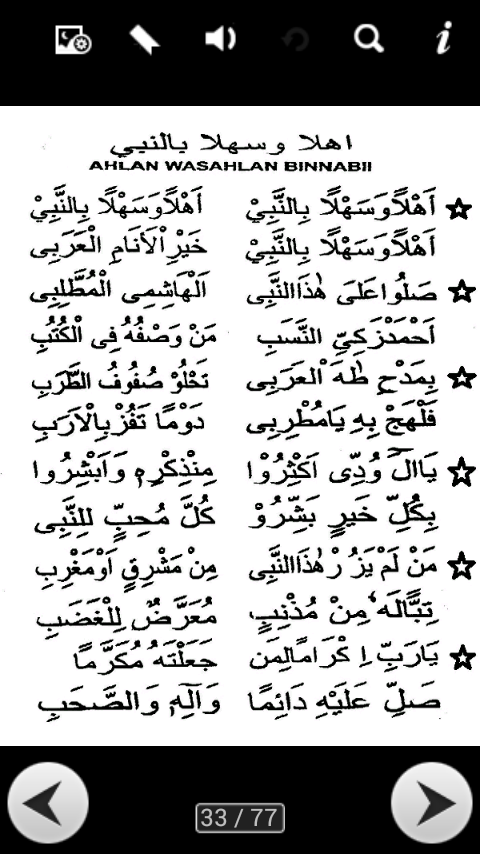 اهلا وسهلا بالنبي
AHLAN WASAHLAN BINNABII
أَهْلًاوَسَهْلًا بِالنَّبِيْ أَهْلًاوَسَهْلًا بِالنَّبِيْ
أَهْلًاوَسَهْلًا بِالنَّبِيْ خَيْرِالْأَنَامِ الْعَرَبِى
صَلُّواعَلَى هٰذَاالنَّبِى اَلْهَاشِمِى الْمُطَّلِبِى
اَحْمَدْزَكِيِّ النَّسَبِ مَنْ وَصْفُهُ فِى الْكُتُبِ
بِمَدْحِ طٰهَ الْعَرَبِى تَحْلُوْ صُفُوفُ الطَّرَبِ
فَلْهَجْ بِهِ يَامُطْرِبِى دَوْمًا تَفُزْبِالْاَرَبِ
يَاآلَ وُدِّى اَكْثِرُوْا مِنْذِكْرِهِ وَابْشِرُوا
بِكُلِّ خَيْرٍ بَشِّرُوْ كُلَّ مُحِبٍّ لِلنَّبِى
مَنْ لَمْ يَزُرْ هٰذَاالنَّبِى مِنْ مَشْرِقٍ اَوْمَغْرِبِ
تِبًّالَهُ مِنْ مُذْنِبٍ مُعَرَّضٌ لِلْغَضَبِ
يَارَبِّ اِكْرَامًالِمَن جَعَلْتَهُ مُكَرَّمًا
صَلِّ عَلَيْهِ دَائِمًا وَآلِهِ وَالصَّحَبِ
33 / 77